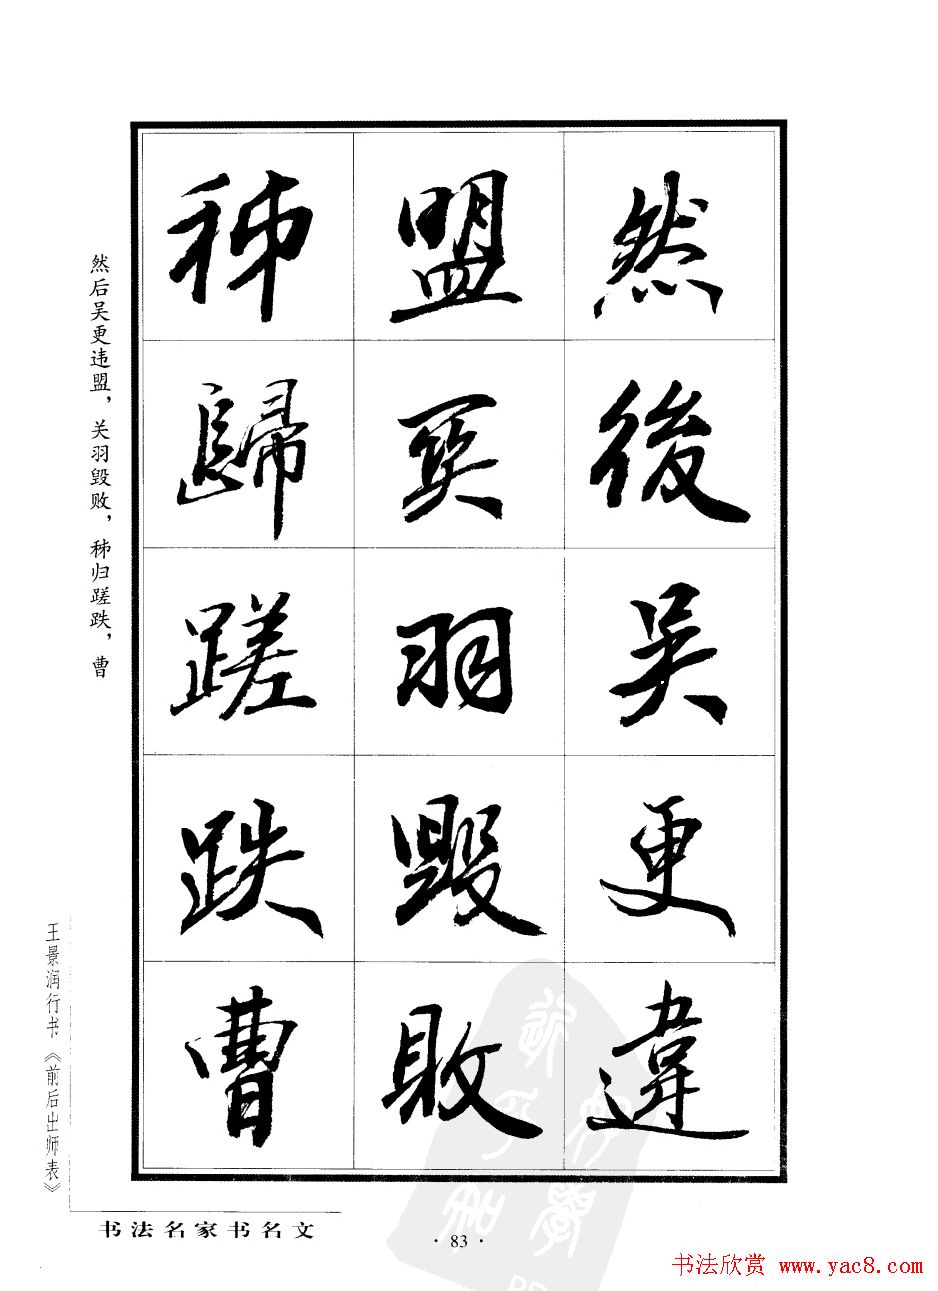 然後吴更違
盟関羽毁敗
秭歸蹉跌曹
然后吴更违盟，关羽毁败，秭归蹉跌，曹
王景润行书《前后出师表》
书法名家书名文
·83·
书法欣赏 www.yac8.com